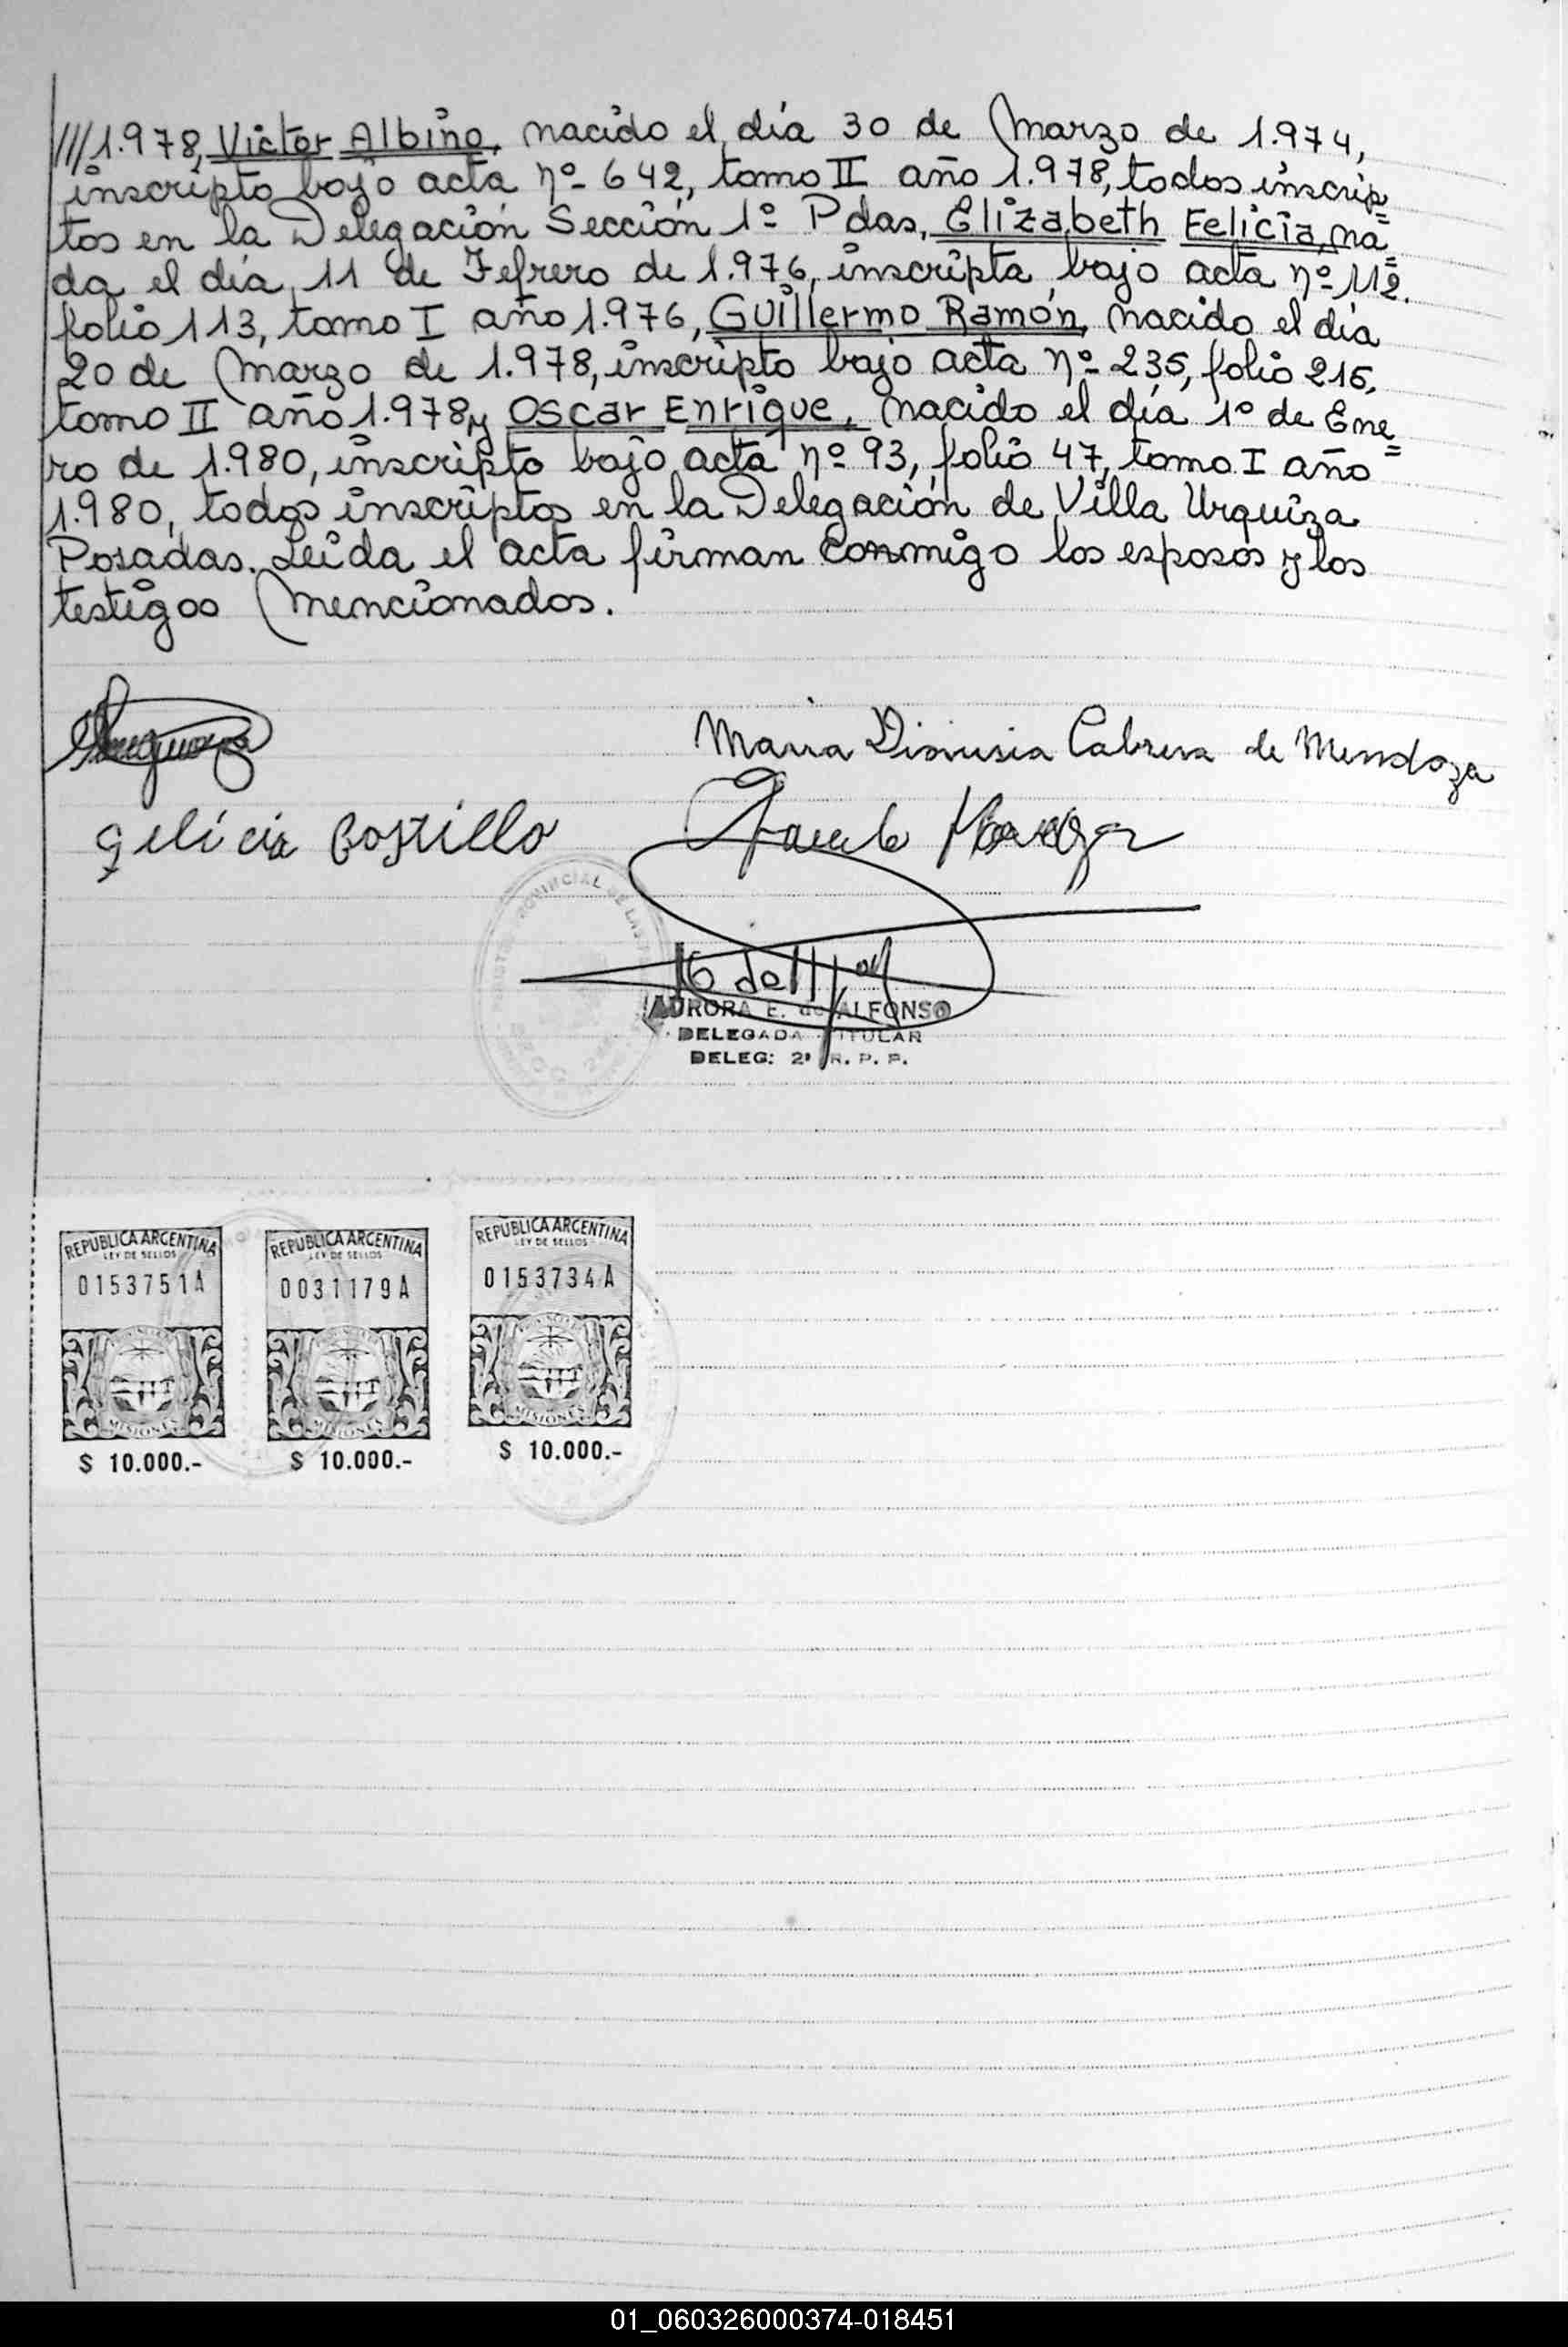 ///1.978, Victor Albino, nacido el día 30 de Marzo de 1.974,
inscripto bajo acta nº 642, tomo II año 1.978, todos inscrip=
tos en la Delegación Sección 1º Pdas, Elizabeth Felicia, na=
da el día 11 de Febrero de 1.976, inscripta bajo acta nº 112.
folio 113, tomo I año 1.976, Guillermo Ramón, nacido el día
20 de Marzo de 1.978, inscripto bajo acta nº 235, folio 216,
tomo II año 1.978, y Oscar Enrique, nacido el día 1º de Ene=
ro de 1.980, inscripto bajo acta nº 93, folio 47, tomo I año
1.980, todos inscriptos en la Delegación de Villa Urquiza
Posadas. Leida el acta firman conmigo los esposos y los
testigos mencionados.
Maria Dionisia Cabrera de Mendoza
Felicia Costillo
PROVINCIAL DE LAS
AURORA E. de ALFONSO
DELEGADA TITULAR
DELEG: 2ª R. P. P.
REPUBLICA ARGENTINA
LEY DE SELLOS
0153751A
MISIONES
$ 10.000.-
REPUBLICA ARGENTINA
LEY DE SELLOS
0031179A
MISIONES
$ 10.000.-
REPUBLICA ARGENTINA
LEY DE SELLOS
0153734A
MISIONES
$ 10.000.-
01_060326000374-018451